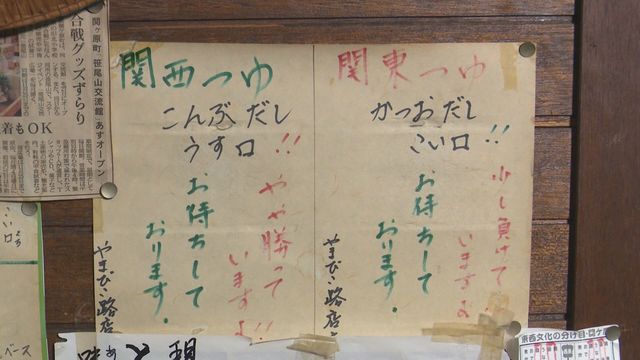 関ヶ原町 笹尾山交流館 あすオープン
合戦グッズずらり
着もOK
関西つゆ
こんぶだし
うす口!!
やや勝って
いますよ!!
お待ちして
おります.
やまびこ路店
関東つゆ
かつおだし
こい口!!
少し負けて
いますよ
お待ちして
おります.
やまびこ路店
こい口
ベース
東西文化の分け目・関ケ